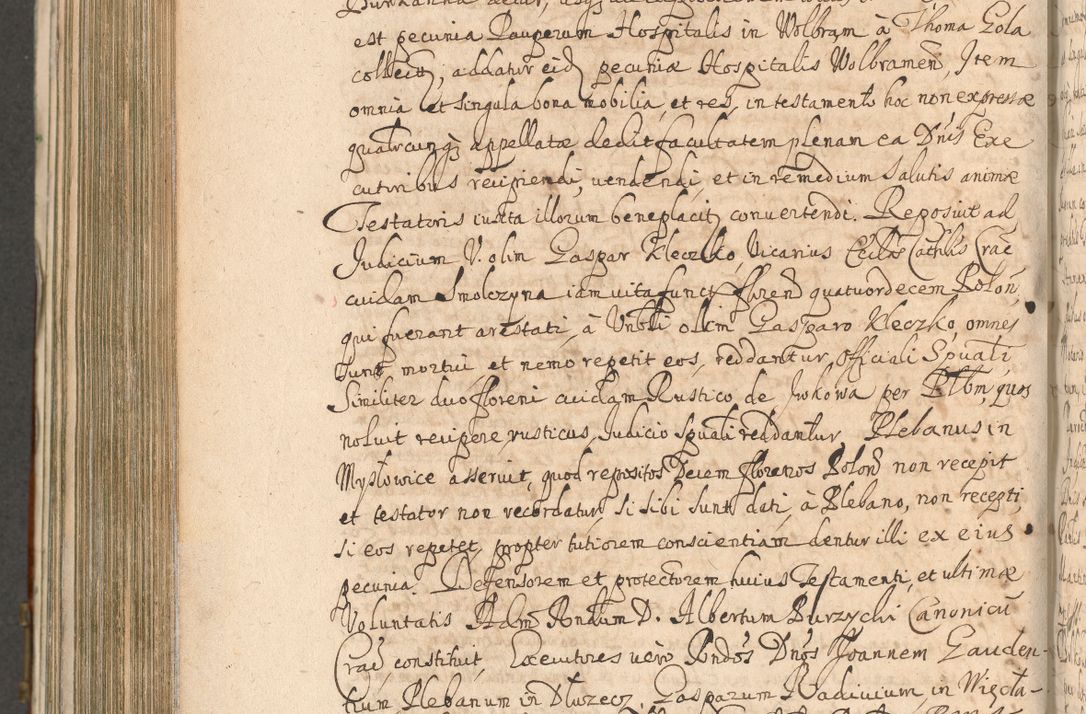 est pecunia Pauperum Hospitalis in Wolbram à Thoma Gola
collect, addatur eid pecuniæ Hospitalis Wolbramen, Item
omnia et singula bona mobilia, et res, in testamento hoc non expressæ
qualrcunq appellatæ dedit facultatem plenam ea Dnis Exe
cutoribus recipiendi, vendendi, et in remedium salutis animæ
Testatoris iuxta illorum beneplacit convertendi. Reposuit ad
Judicium V. olim Gaspar Kleczko, Vicarius Eccles Cathlis Crac
cuidam Smolczyna iam vita funct floren quatuordecem Polon,
qui fuerant arestati, à Vnbli olim Gasparo Kleczko, omnes
sunt mortui et nemo repetit eos, reddantur, Officiali Spuali,
Similiter duo floreni cuidam Rustico de Jwkowa per Plbm, quos
noluit recipere rusticus, Judicio Spuali reddantur, Plebanus in
Mysłowice asseruit, quod repositos Decem florenos Polon non recepit
et testator non recordatur, si sibi sunt dati, à Plebano, non recepti,
si eos repetet, propter tutiorem conscientiam dentur illi ex eius
pecunia. Defensorem et protectorem huius Testamenti, et ultimæ
Voluntatis Adm Rndum D. Albertum Burzychi Canonicu
Crac constituit, Executores vero Rndos Dnos Joannem Gauden-
tium Plebanum in Dłuzecz, Gasparum Radivium, in Więcła-